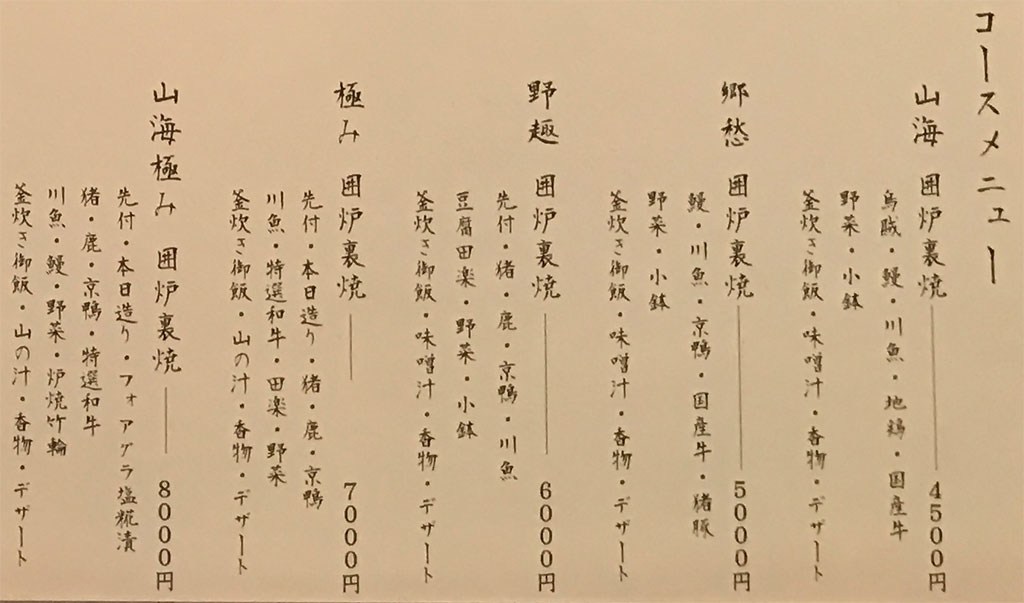 コースメニュー
山海 囲炉裏焼 ―― 4500円
烏賊・鰻・川魚・地鶏・国産牛
野菜・小鉢
釜炊き御飯・味噌汁・香物・デザート
郷愁 囲炉裏焼 ―― 5000円
鰻・川魚・京鴨・国産牛・猪豚
野菜・小鉢
釜炊き御飯・味噌汁・香物・デザート
野趣 囲炉裏焼 ―― 6000円
先付・猪・鹿・京鴨・川魚
豆腐田楽・野菜・小鉢
釜炊き御飯・味噌汁・香物・デザート
極み 囲炉裏焼 ―― 7000円
先付・本日造り・猪・鹿・京鴨
川魚・特選和牛・田楽・野菜
釜炊き御飯・山の汁・香物・デザート
山海極み 囲炉裏焼 ―― 8000円
先付・本日造り・フォアグラ塩糀漬
猪・鹿・京鴨・特選和牛
川魚・鰻・野菜・炉焼竹輪
釜炊き御飯・山の汁・香物・デザート